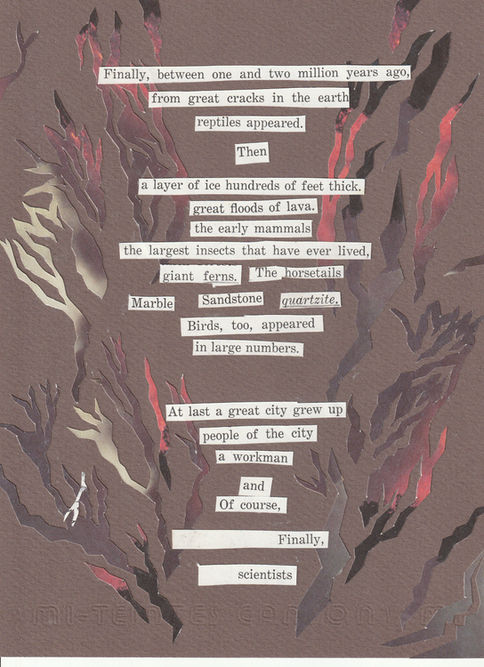 Finally, between one and two million years ago,
from great cracks in the earth
reptiles appeared.
Then
a layer of ice hundreds of feet thick.
great floods of lava.
the early mammals
the largest insects that have ever lived,
giant ferns. The horsetails
Marble Sandstone quartzite.
Birds, too, appeared
in large numbers.
At last a great city grew up
people of the city
a workman
and
Of course,
Finally,
scientists
MI-TEINTES CANSON